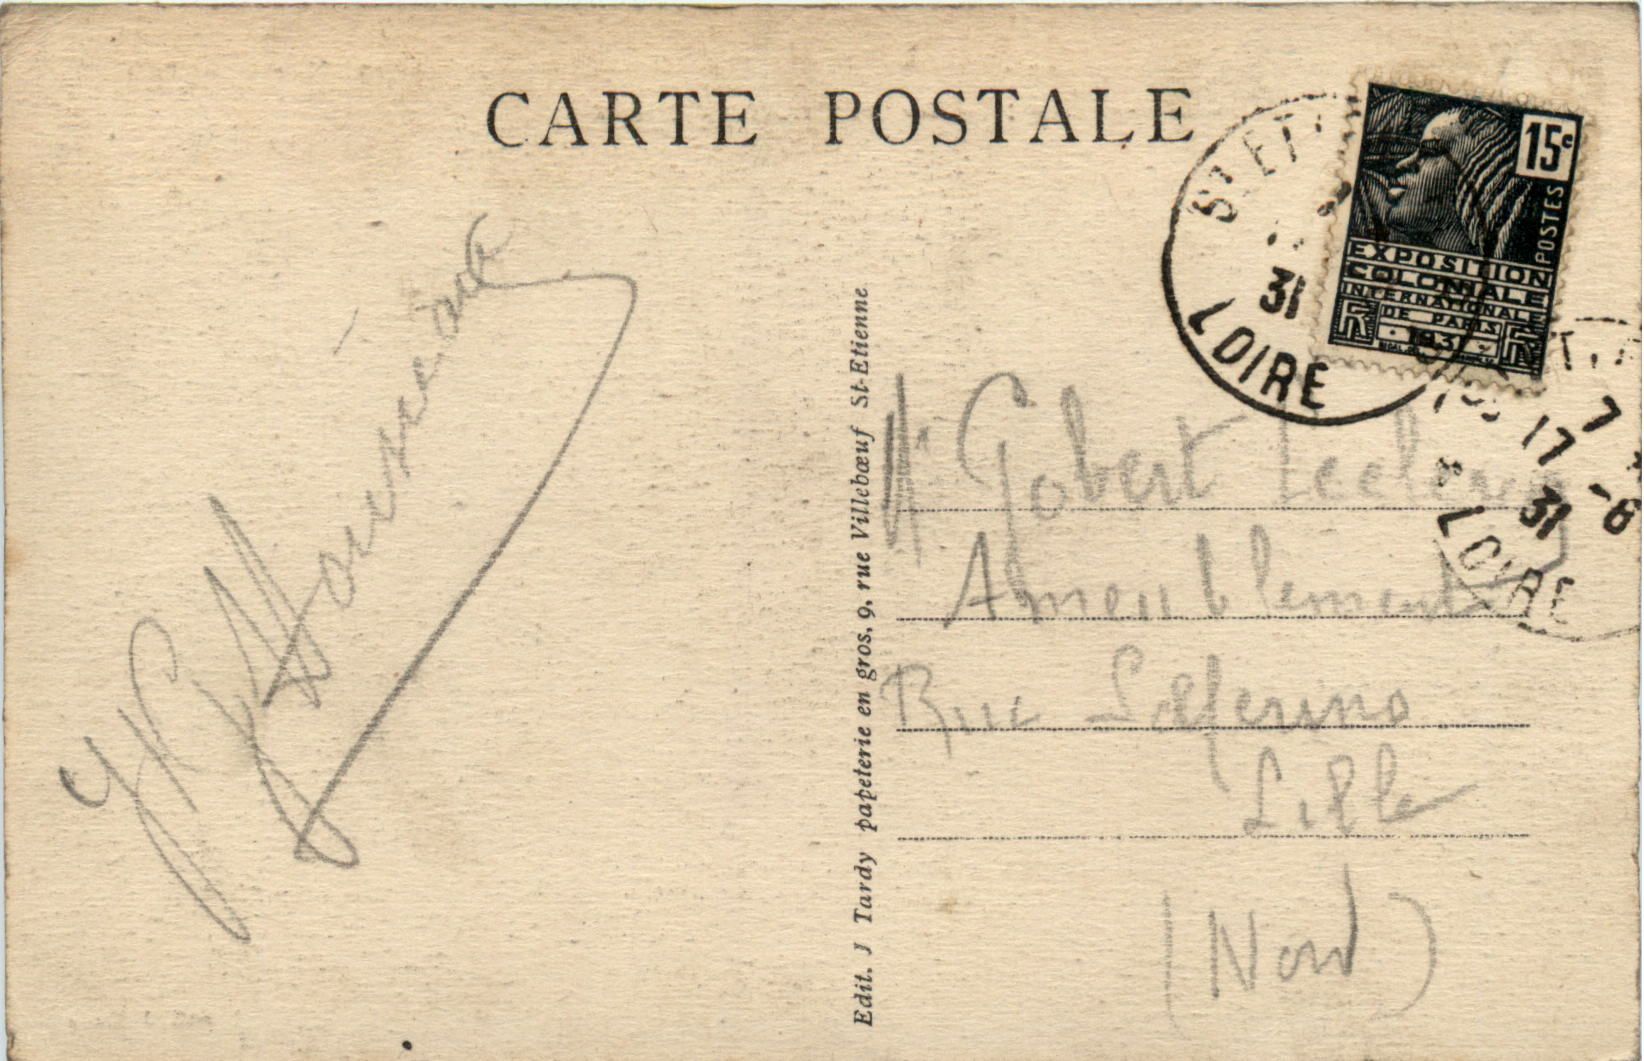 CARTE POSTALE
15c
POSTES
EXPOSITION
COLONIALE
INTERNATIONALE
DE PARIS
1931
RF
ST ET
31
LOIRE
17
7
31 -8
LOIRE
Edit. J Tardy papeterie en gros, 9, rue Villebœuf St-Etienne
Mr Gobert Leclercq
Ameublement
Rue
Lille
(Nord)